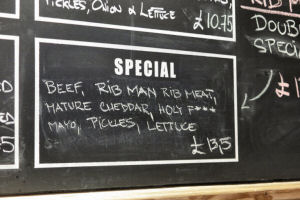 PICKLES, ONION & LETTUCE
£10.75
DOUB
SPECI
SPECIAL
BEEF, RIB MAN RIB MEAT,
MATURE CHEDDAR, HOLY F***
MAYO, PICKLES, LETTUCE
£13,5